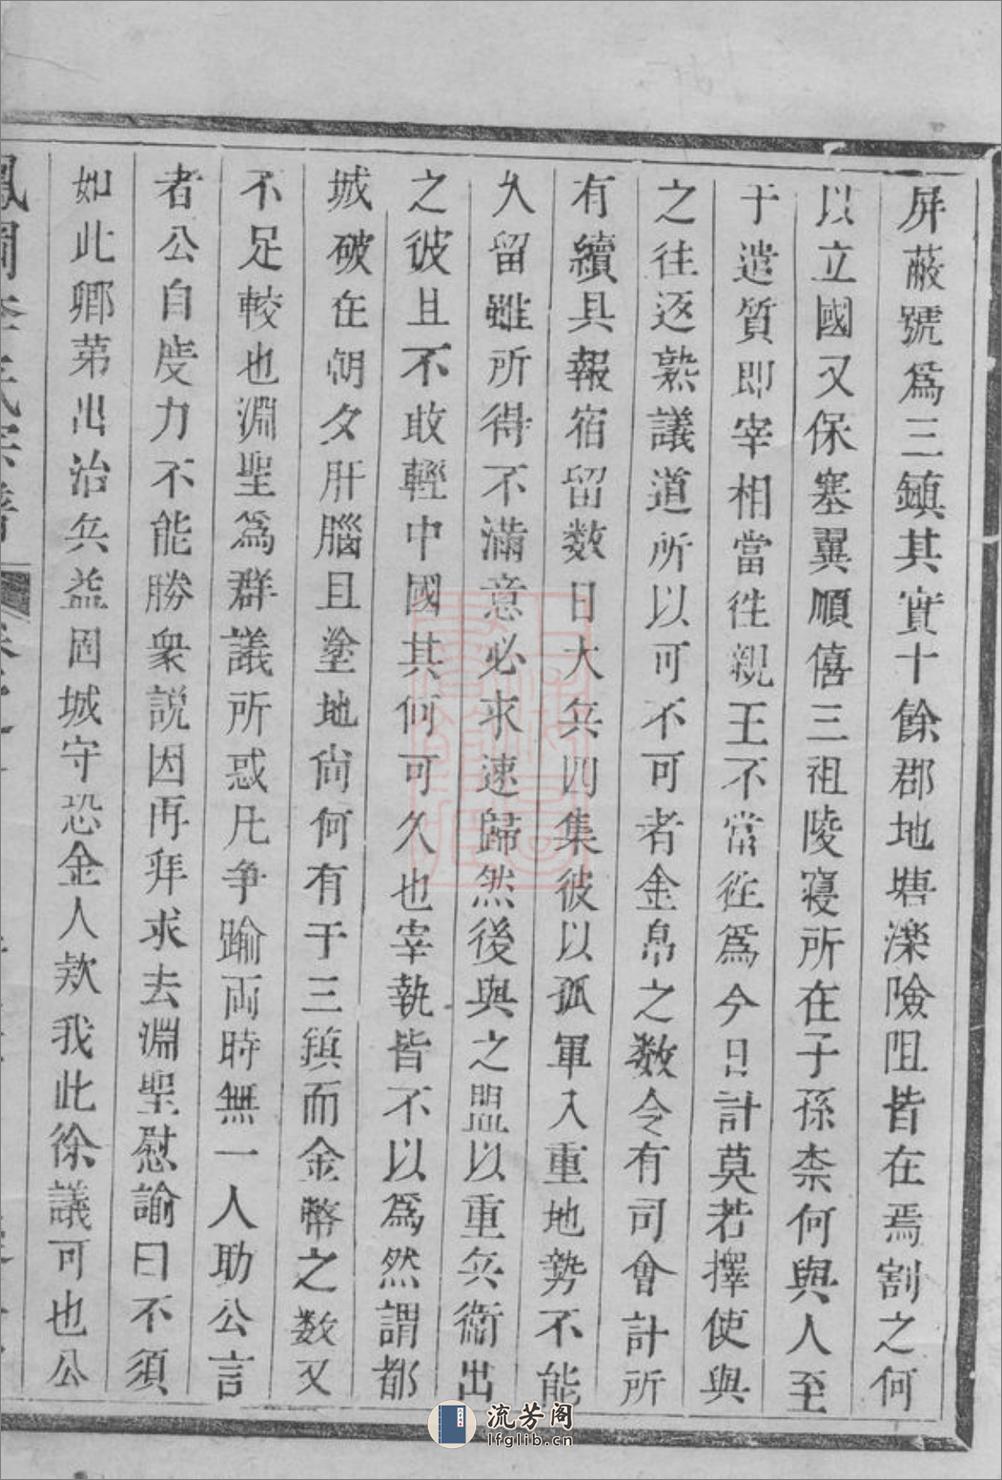 屏蔽號爲三鎮其實十餘郡地塘濼險阻皆在焉割之何
以立國又保塞翼順僖三祖陵寢所在子孫柰何與人至
于遣質即宰相當徃親王不當徃爲今日計莫若擇使與
之往返熟議道所以可不可者金帛之数令有司會計所
有續具報宿留数日大兵四集彼以孤軍入重地勢不能
久留雖所得不滿意必求速歸然後與之盟以重兵衞出
之彼且不敢輕中國其何可久也宰執皆不以爲然謂都
城破在朝夕肝腦且塗地尙何有于三鎮而金幣之数又
不足較也淵聖爲群議所惑凡争踰兩時無一人助公言
者公自度力不能勝衆説因再拜求去淵聖慰諭曰不須
如此卿第出治兵益固城守恐金人欵我此徐議可也公
鳳岡李氏宗譜
流芳阁
lfglib.cn